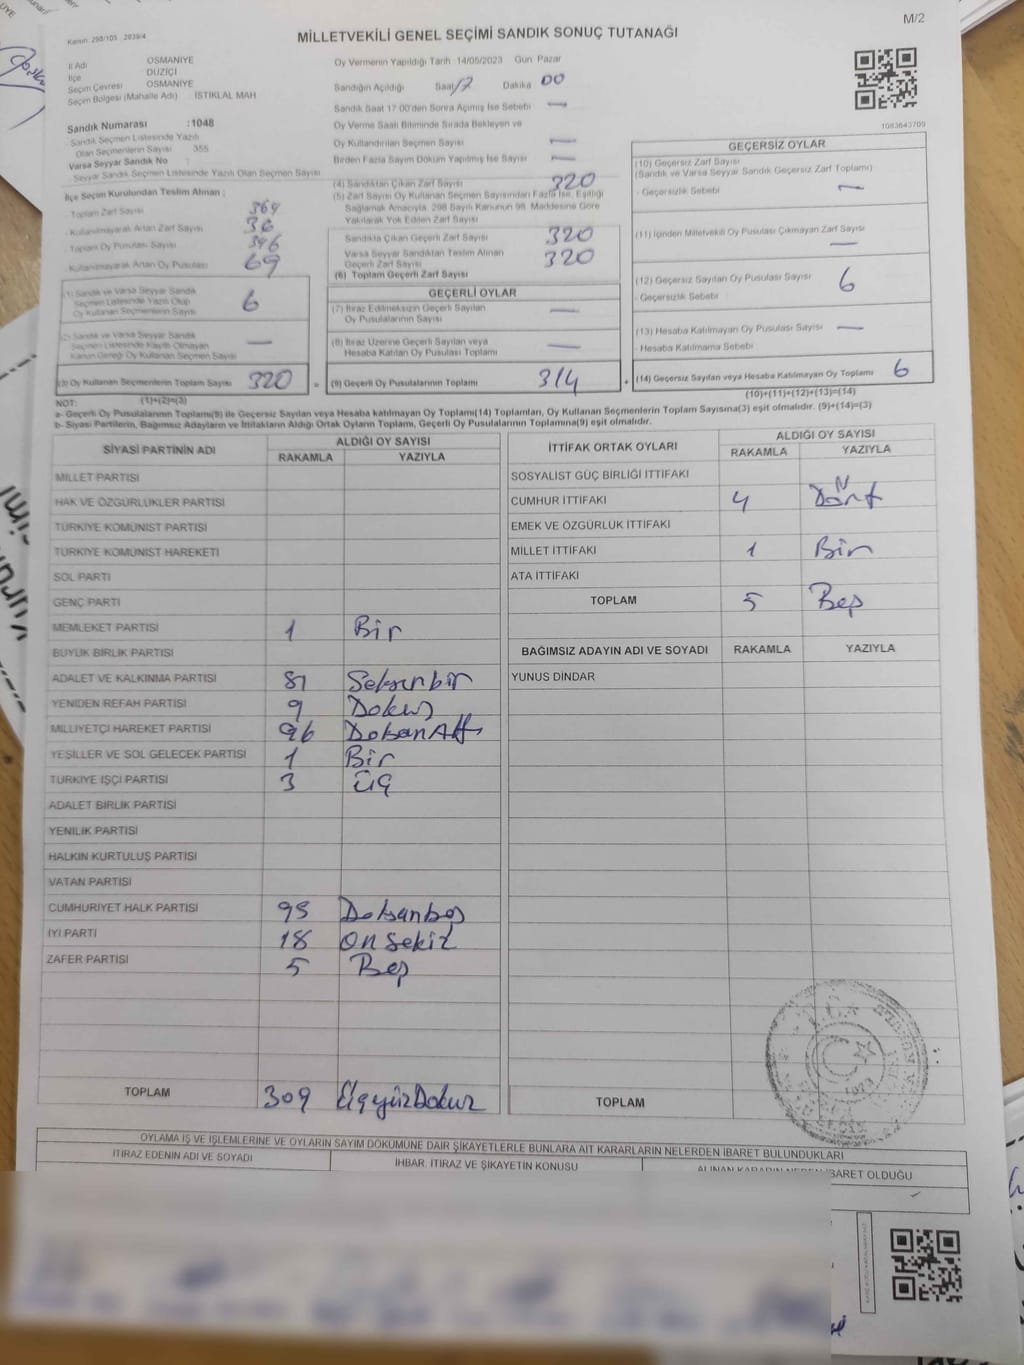 M/2
Kanun: 298/105 2839/4
MİLLETVEKİLİ GENEL SEÇİMİ SANDIK SONUÇ TUTANAĞI
İl Adı OSMANİYE
İlçe DÜZİÇİ
Seçim Çevresi OSMANİYE
Seçim Bölgesi (Mahalle Adı) İSTİKLAL MAH
Sandık Numarası :1048
Sandık Seçmen Listesinde Yazılı
Olan Seçmenlerin Sayısı 355
Varsa Seyyar Sandık No
Seyyar Sandık Seçmen Listesinde Yazılı Olan Seçmen Sayısı
İlçe Seçim Kurulundan Teslim Alınan ;
Toplam Zarf Sayısı 364
Kullanılmayarak Artan Zarf Sayısı 36
Toplam Oy Pusulası Sayısı 396
Kullanılmayarak Artan Oy Pusulası 69
(1) Sandık ve Varsa Seyyar Sandık
Seçmen Listesinde Yazılı Olup
Oy Kullanan Seçmenlerin Sayısı 6
(2) Sandık ve Varsa Seyyar Sandık
Seçmen Listesinde Kayıtlı Olmayan
Kanun Gereği Oy Kullanan Seçmen Sayısı —
(3) Oy Kullanan Seçmenlerin Toplam Sayısı 320 =
Oy Vermenin Yapıldığı Tarih 14/05/2023 Gün Pazar
Sandığın Açıldığı Saat 17 Dakika 00
Sandık Saat 17:00'den Sonra Açılmış İse Sebebi —
Oy Verme Saati Bitiminde Sırada Bekleyen ve
Oy Kullandırılan Seçmen Sayısı —
Birden Fazla Sayım Döküm Yapılmış İse Sayısı —
(4) Sandıktan Çıkan Zarf Sayısı 320
(5) Zarf Sayısı Oy Kullanan Seçmen Sayısından Fazla İse, Eşitliği
Sağlamak Amacıyla, 298 Sayılı Kanunun 98. Maddesine Göre
Yakılarak Yok Edilen Zarf Sayısı
Sandıkta Çıkan Geçerli Zarf Sayısı 320
Varsa Seyyar Sandıktan Teslim Alınan
Geçerli Zarf Sayısı 320
(6) Toplam Geçerli Zarf Sayısı
GEÇERLİ OYLAR
(7) İtiraz Edilmeksizin Geçerli Sayılan
Oy Pusulalarının Sayısı —
(8) İtiraz Üzerine Geçerli Sayılan veya
Hesaba Katılan Oy Pusulası Toplamı —
(9) Geçerli Oy Pusulalarının Toplamı 314 +
1083643700
GEÇERSİZ OYLAR
(10) Geçersiz Zarf Sayısı
(Sandık ve Varsa Seyyar Sandık Geçersiz Zarf Toplamı)
- Geçersizlik Sebebi —
(11) İçinden Milletvekili Oy Pusulası Çıkmayan Zarf Sayısı —
(12) Geçersiz Sayılan Oy Pusulası Sayısı 6
- Geçersizlik Sebebi
(13) Hesaba Katılmayan Oy Pusulası Sayısı —
- Hesaba Katılmama Sebebi
(14) Geçersiz Sayılan veya Hesaba Katılmayan Oy Toplamı 6
(10)+(11)+(12)+(13)=(14)
NOT: (1)+(2)=(3)
a- Geçerli Oy Pusulalarının Toplamı(9) ile Geçersiz Sayılan veya Hesaba katılmayan Oy Toplamı(14) Toplamları, Oy Kullanan Seçmenlerin Toplam Sayısına(3) eşit olmalıdır. (9)+(14)=(3)
b- Siyasi Partilerin, Bağımsız Adayların ve İttifakların Aldığı Ortak Oyların Toplamı, Geçerli Oy Pusulalarının Toplamına(9) eşit olmalıdır.
SİYASİ PARTİNİN ADI ALDIĞI OY SAYISI
RAKAMLA YAZIYLA
MİLLET PARTİSİ
HAK VE ÖZGÜRLÜKLER PARTİSİ
TÜRKİYE KOMÜNİST PARTİSİ
TÜRKİYE KOMÜNİST HAREKETİ
SOL PARTİ
GENÇ PARTİ
MEMLEKET PARTİSİ 1 Bir
BÜYÜK BİRLİK PARTİSİ
ADALET VE KALKINMA PARTİSİ 81 Seksenbir
YENİDEN REFAH PARTİSİ 9 Dokuz
MİLLİYETÇİ HAREKET PARTİSİ 96 Doksan Altı
YEŞİLLER VE SOL GELECEK PARTİSİ 1 Bir
TÜRKİYE İŞÇİ PARTİSİ 3 üç
ADALET BİRLİK PARTİSİ
YENİLİK PARTİSİ
HALKIN KURTULUŞ PARTİSİ
VATAN PARTİSİ
CUMHURİYET HALK PARTİSİ 95 Doksanbeş
İYİ PARTİ 18 on sekiz
ZAFER PARTİSİ 5 Beş
TOPLAM 309 ÜçyüzDokuz
İTTİFAK ORTAK OYLARI ALDIĞI OY SAYISI
RAKAMLA YAZIYLA
SOSYALİST GÜÇ BİRLİĞİ İTTİFAKI
CUMHUR İTTİFAKI 4 Dört
EMEK VE ÖZGÜRLÜK İTTİFAKI
MİLLET İTTİFAKI 1 Bir
ATA İTTİFAKI
TOPLAM 5 Beş
BAĞIMSIZ ADAYIN ADI VE SOYADI RAKAMLA YAZIYLA
YUNUS DİNDAR
TOPLAM
OYLAMA İŞ VE İŞLEMLERİNE VE OYLARIN SAYIM DÖKÜMÜNE DAİR ŞİKAYETLERLE BUNLARA AİT KARARLARIN NELERDEN İBARET BULUNDUKLARI
İTİRAZ EDENİN ADI VE SOYADI İHBAR, İTİRAZ VE ŞİKAYETİN KONUSU ALINAN KARARIN NEDEN İBARET OLDUĞU